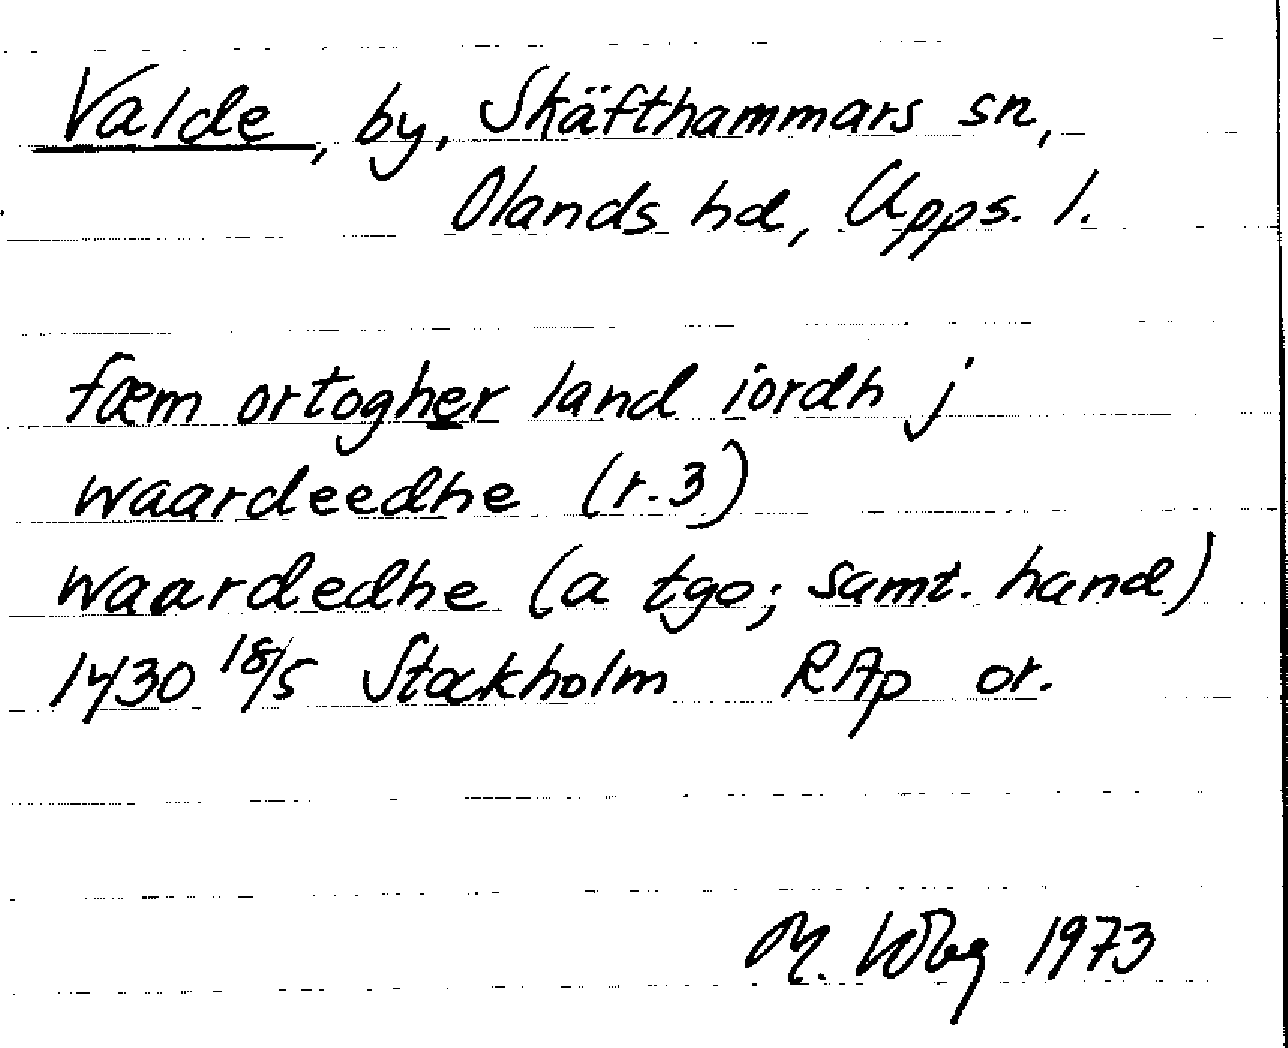 Valde, by, Skäfthammars sn,
Olands hd, Upps. l.
fæm ortogher land iordh j
waardeedhe (r. 3)
waardedhe (a tgo; samt. hand)
1430 18/5 Stockholm RAp or.
M. Wbg 1973